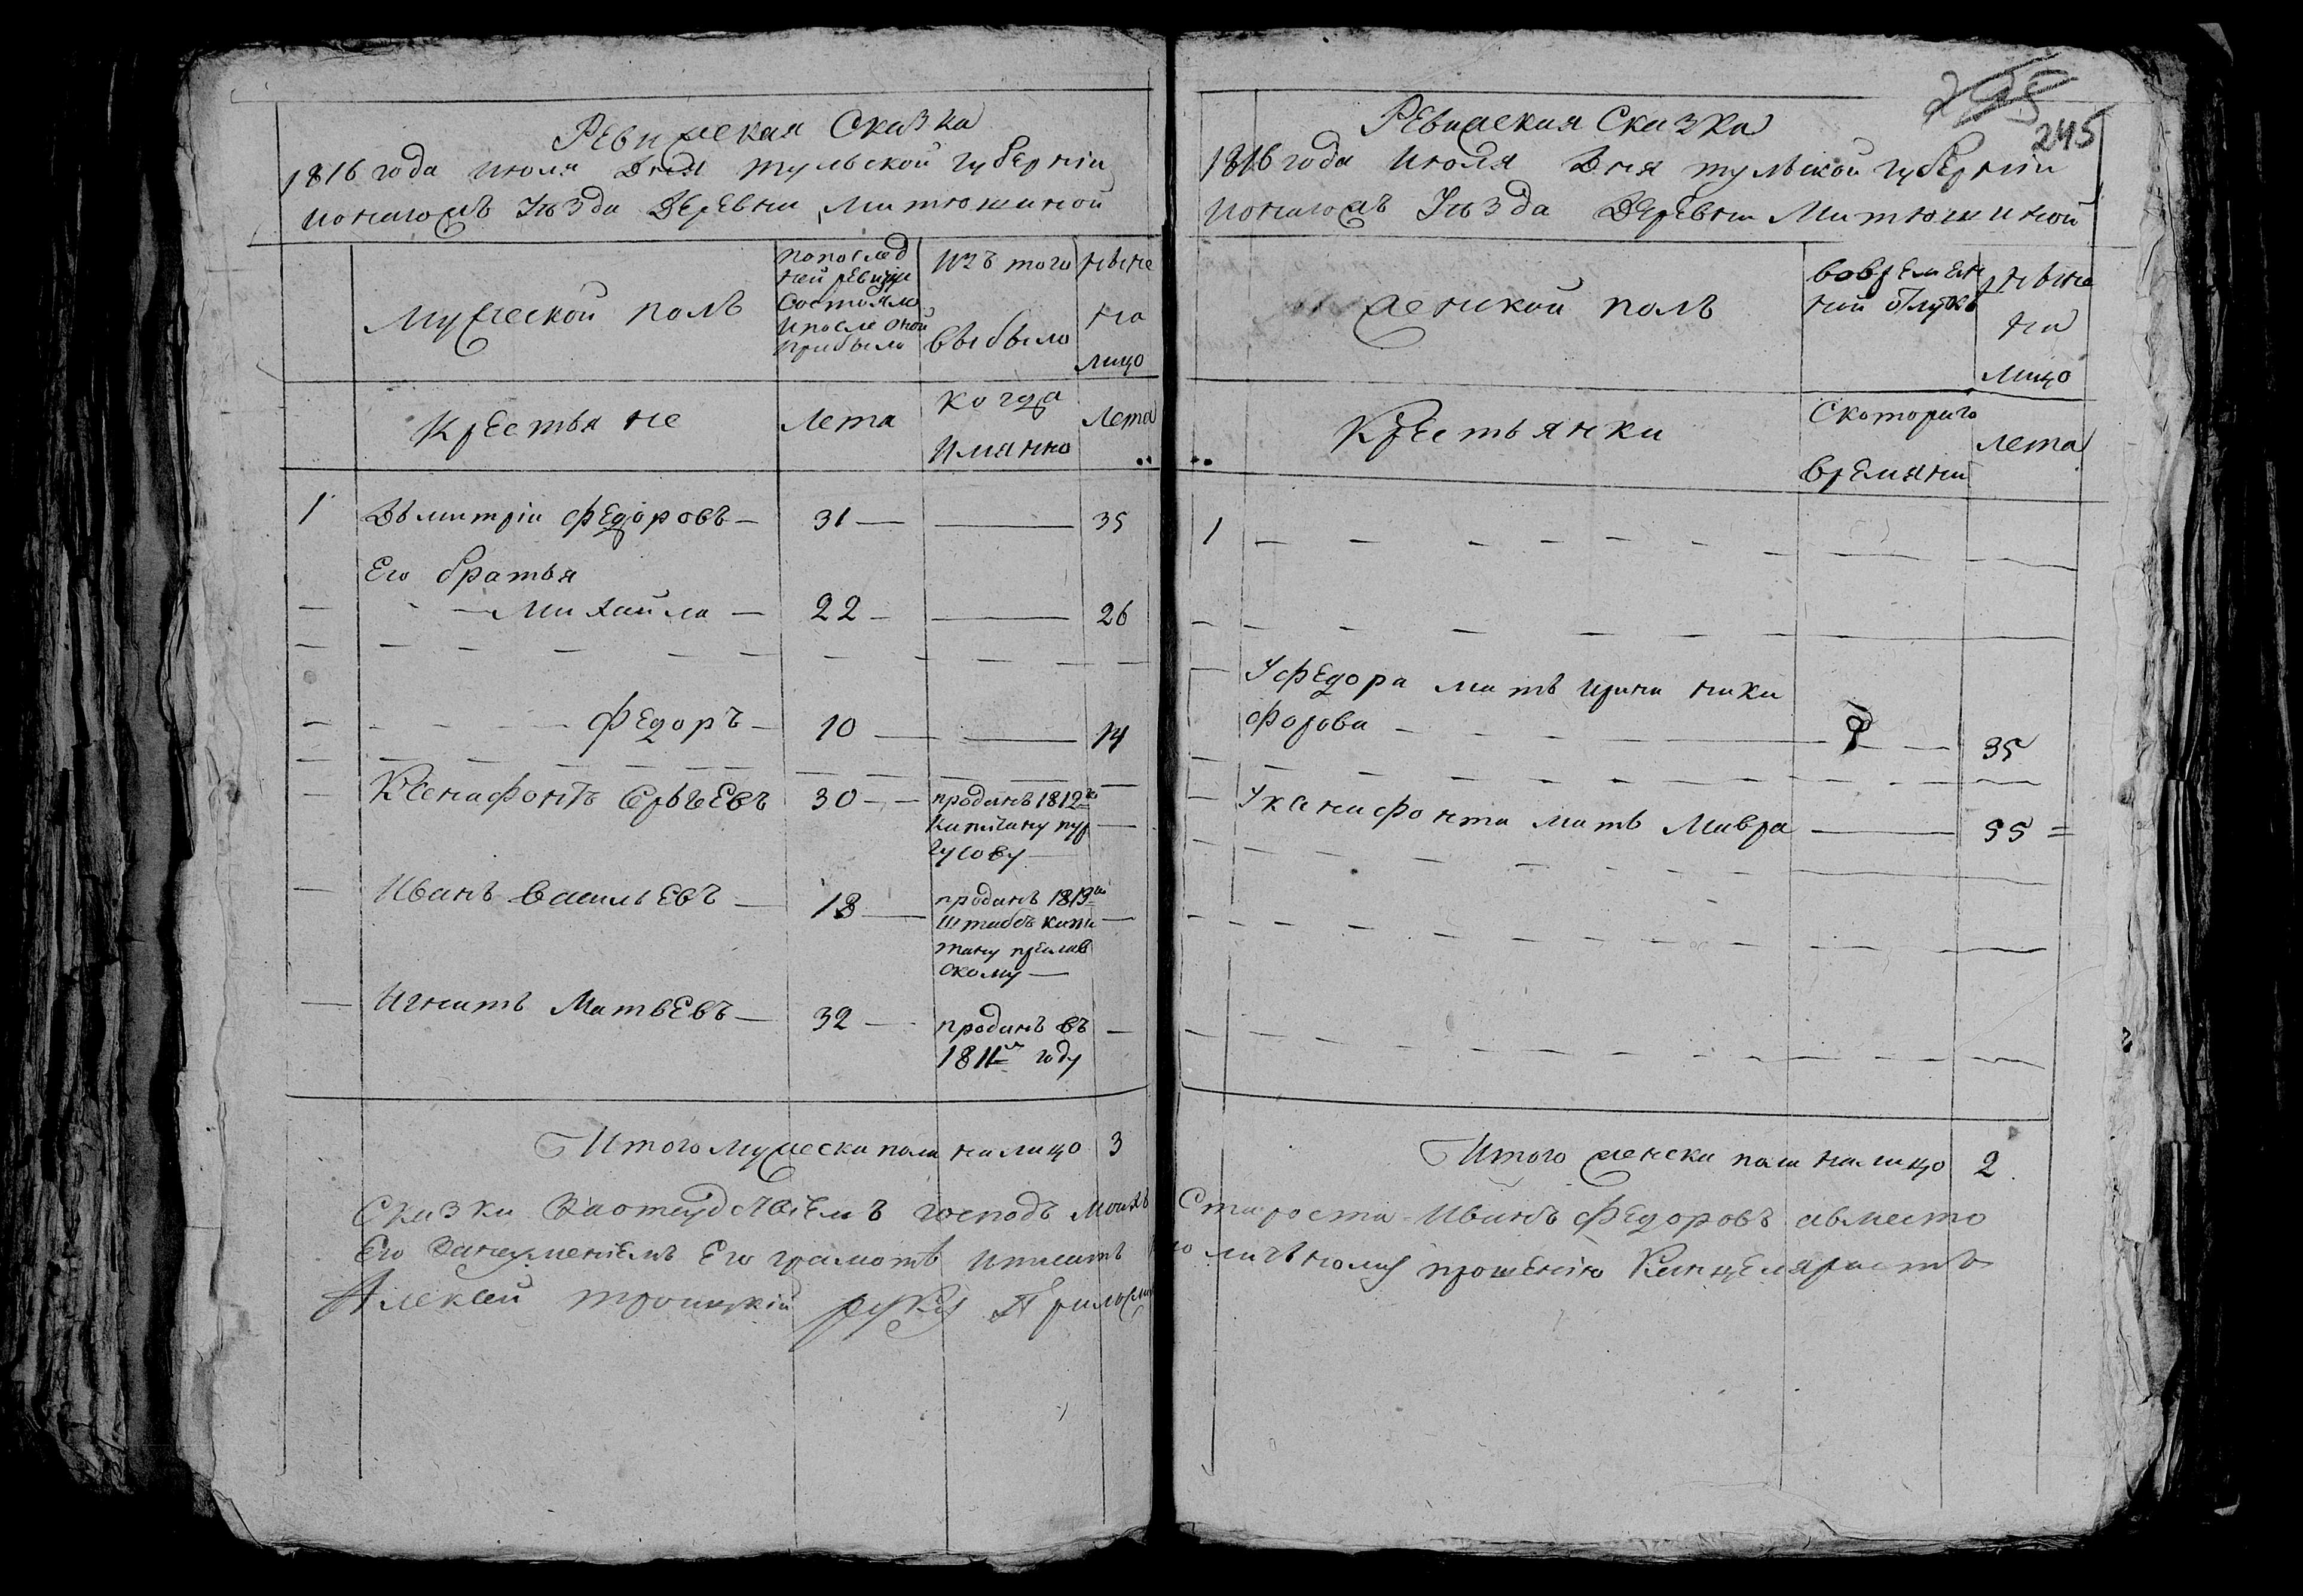 Ревижская Сказка
1816 года июля Дня тульской губерніи
Уезда Деревни Митюшиной
мужеской полъ
попослед
ней ревизии
Состояло
ипосле оной
прибыло
изъ того
выбыло
ныне
на
лицо
Крестьяне
Лета
когда
имянно
Лета
1 Дьмитрій Федоровъ 31 35
Его братья
Михайла 22 26
Федоръ 10 14
Ксенафонтъ Сергеевъ 30
проданъ 1812го
Капитану пур
гусову
Иванъ Васильевъ 18
проданъ 1813го
Штабсъ капи
тану
скому
Игнатъ Матвевъ 32
проданъ въ
1811м году
Итого мужеска пола налицо 3
245
Ревижская Сказка
1816 года июля Дня тульской губерніи
Уезда Деревни Митюшиной
женской полъ
вовремен
ной отлучке
ныне
на
лицо
Крестьянки
Скотораго
времяни
лета
1
Уфедора мать ирина ники
форова 35
Уксенафонта мать Мавра 55
Итого женска пола налицо 2
Сказки заотсудствіемъ господъ моихъ Староста Иванъ Федоровъ авместо
Его занеуменіемъ Его грамоте иписать по личьному прошенію Канцеляристъ
Алексей троицкій руку Приложилъ